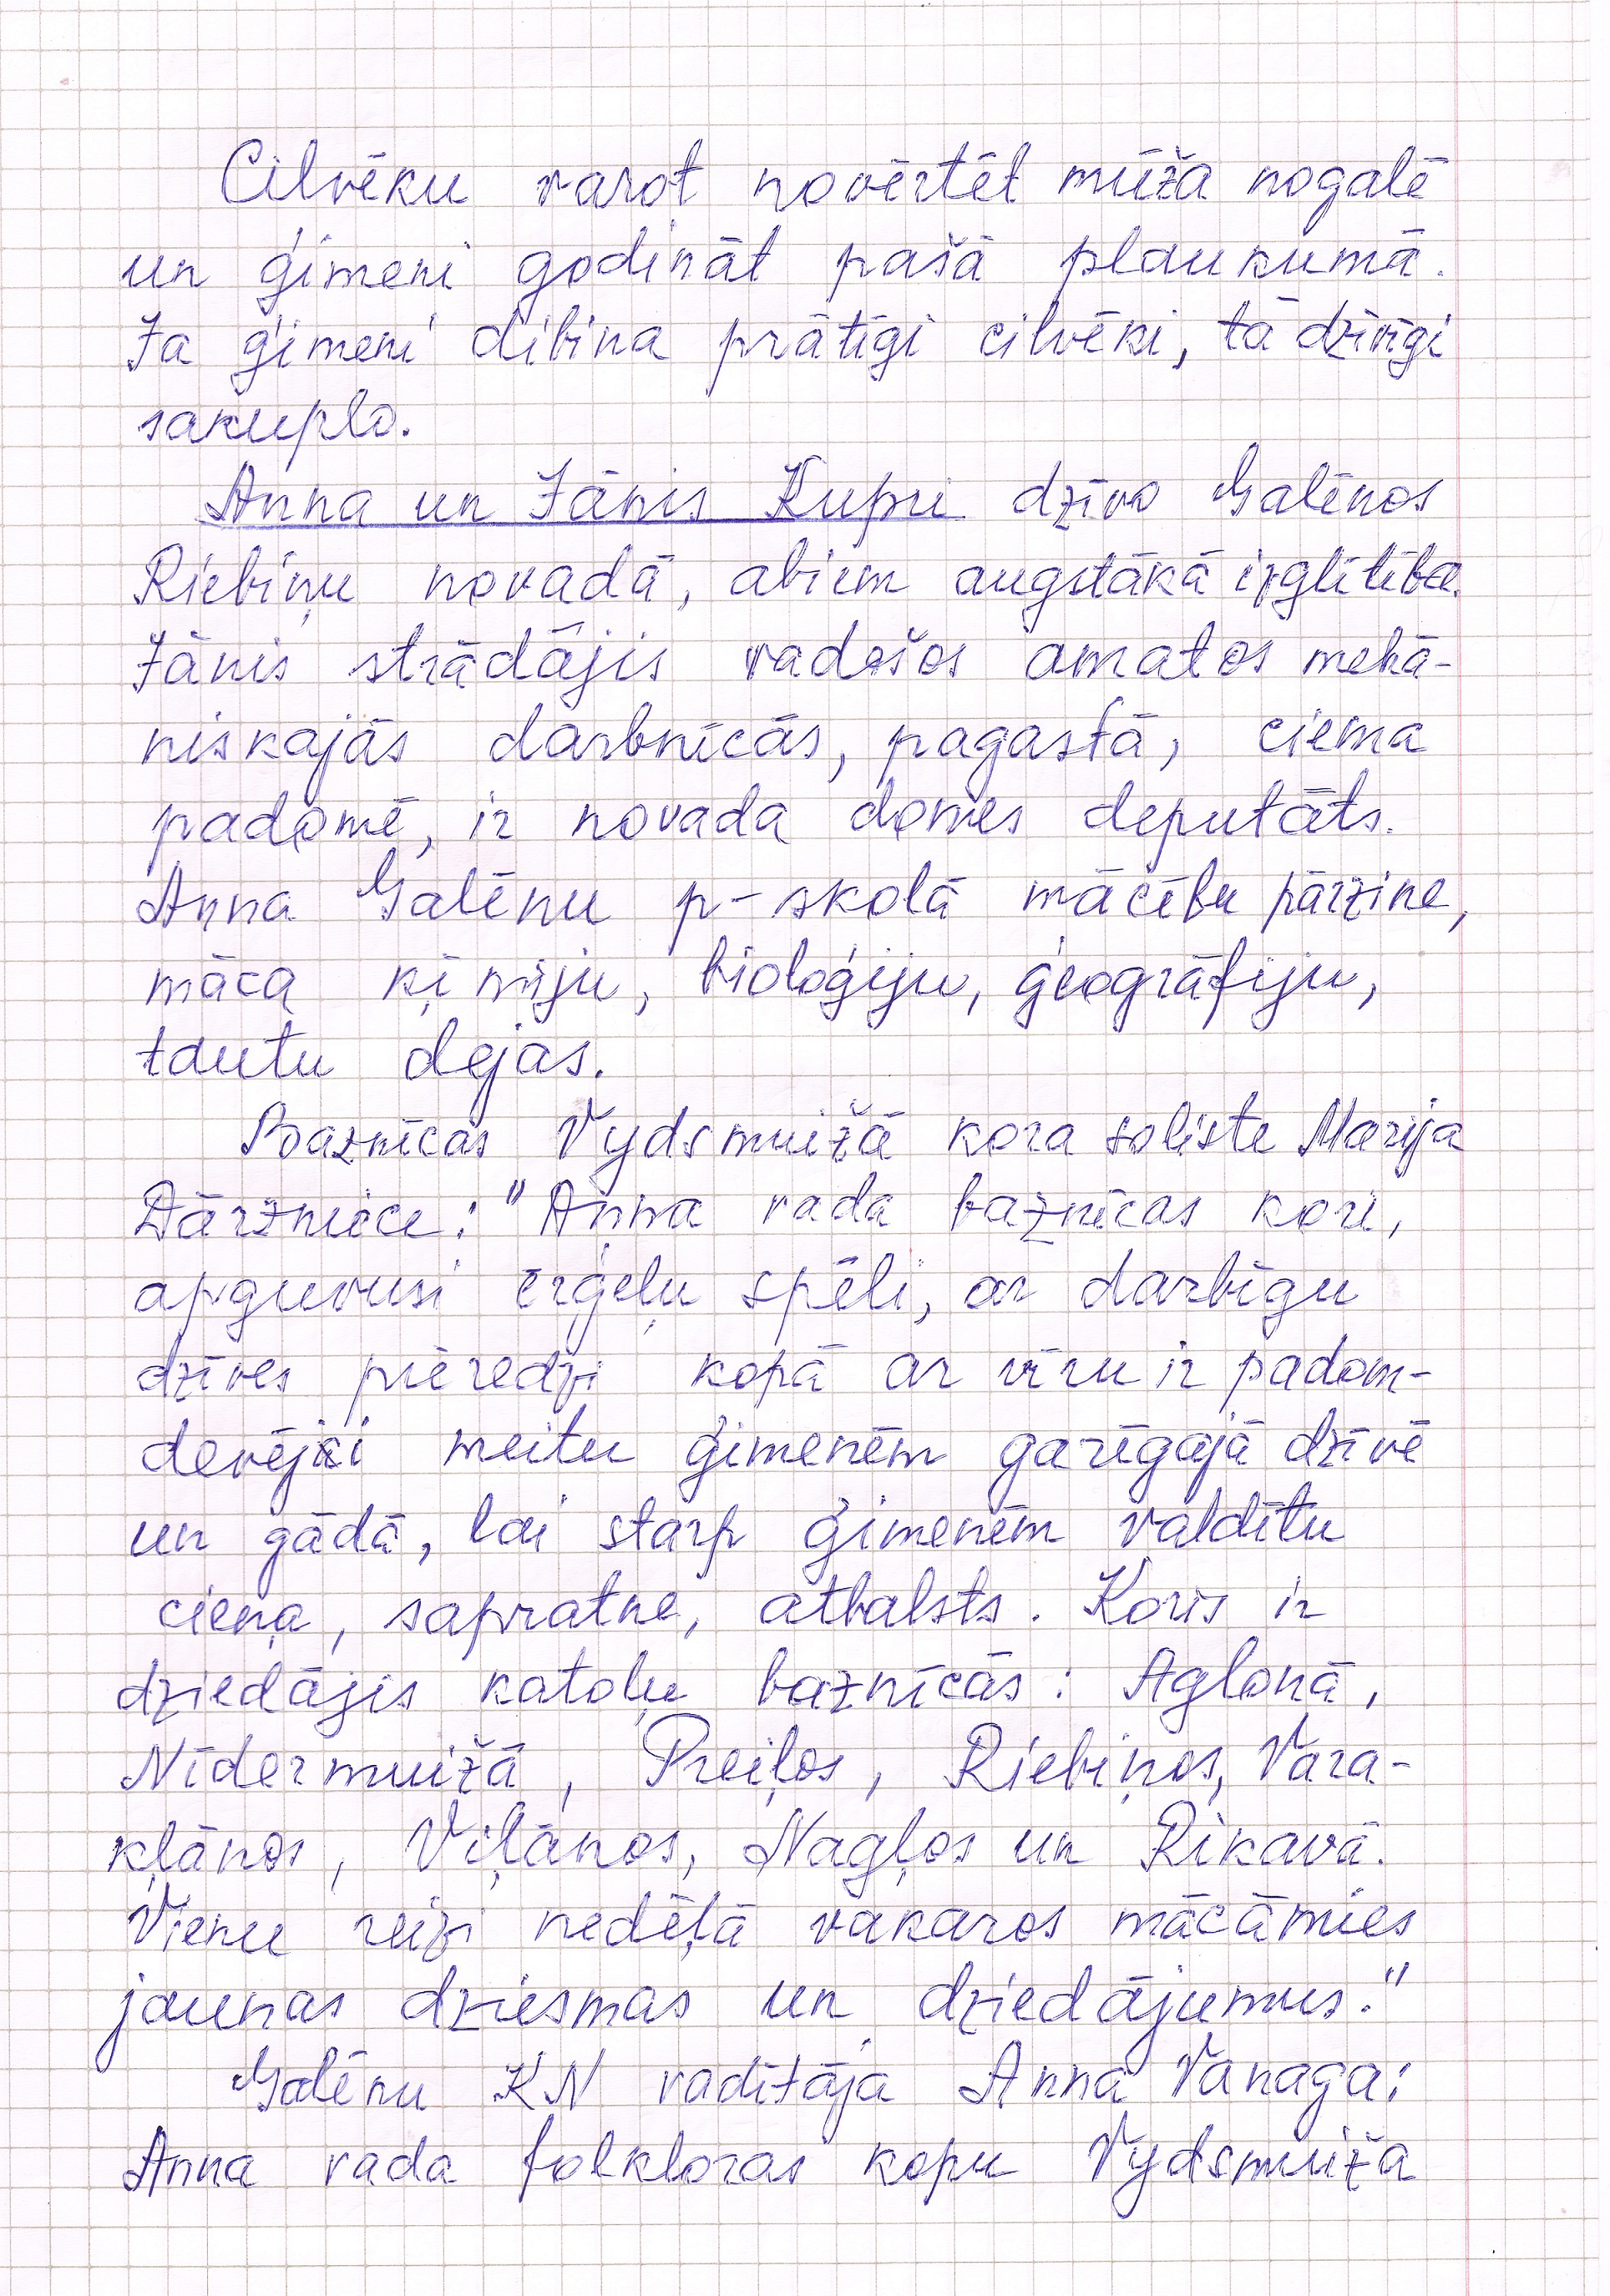 Cilvēku varot novērtēt mūža nogalē
un ģimeni godināt pašā plaukumā.
Ja ģimeni dibina prātīgi cilvēki, tā dzīvīgi
sakuplo.
Anna un Jānis Kupri dzīvo Galēnos
Riebiņu novadā, abiem augstākā izglītība.
Jānis strādājis vadošos amatos mehā-
niskajās darbnīcās, pagastā, ciema
padomē, ir novada domes deputāts.
Anna Galēnu p-skolā mācību pārzine,
māca ķīmiju, bioloģiju, ģeogrāfiju,
tautu dejas.
Baznīcas Vydsmuižā kora soliste Marija
Dārzniece: "Anna vada baznīcas kori,
apguvusi ērģeļu spēli, ar darbīgu
dzīves pieredzi kopā ar vīru ir padom-
devēji meitu ģimenēm garīgajā dzīvē
un gādā, lai starp ģimenēm valdītu
cieņa, sapratne, atbalsts. Koris ir
dziedājis katoļu baznīcās: Aglonā,
Nīdermuižā, Preiļos, Riebiņos, Vara-
kļānos, Viļānos, Nagļos un Rikavā.
Vienu reizi nedēļā vakaros mācāmies
jaunas dziesmas un dziedājumus."
Galēnu KN vadītāja Anna Vanaga:
Anna vada folkloras kopu Vydsmuiža